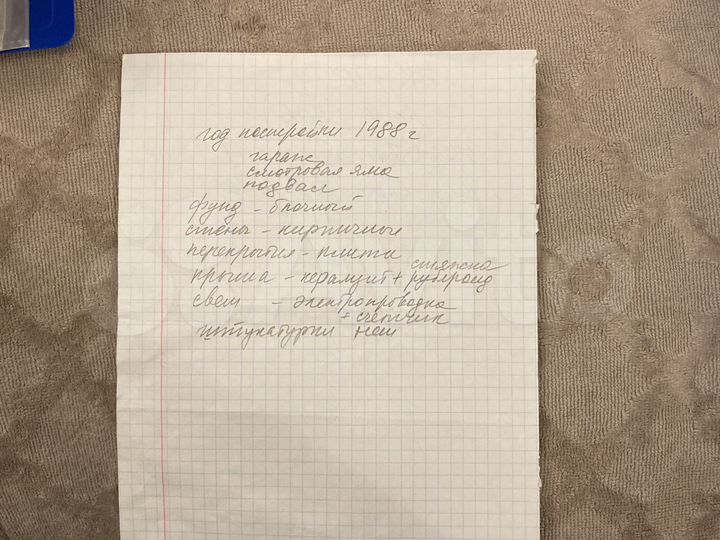 год постройки 1988 г
гараж
смотровая яма
подвал
фунд - блочный
стены - кирпичные
перекрытия - плиты
стяжка
крыша - керамзит + рубероид
свет - электропроводка
+ счётчик
штукатурки нет